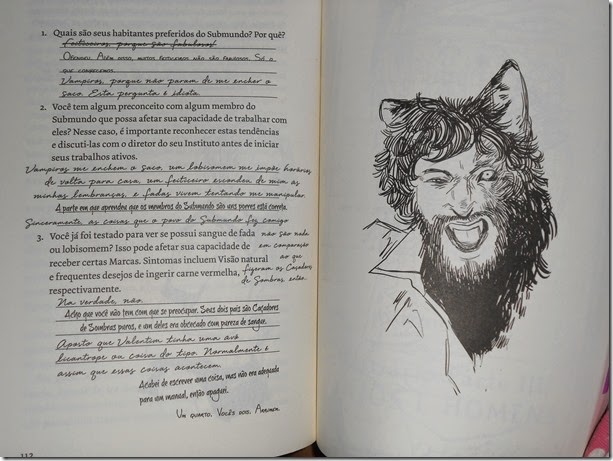 1. Quais são seus habitantes preferidos do Submundo? Por quê?
Feiticeiros, porque são fabulosos!
Ofensivo. Além disso, muitos feiticeiros não são fabulosos. Só o
que conhecemos.
Vampiros, porque não param de me encher o
saco. Esta pergunta é idiota.
2. Você tem algum preconceito com algum membro do
Submundo que possa afetar sua capacidade de trabalhar com
eles? Nesse caso, é importante reconhecer estas tendências
e discuti-las com o diretor do seu Instituto antes de iniciar
seus trabalhos ativos.
Vampiros me enchem o saco, um lobisomem me impõe horários
de volta para casa, um feiticeiro escondeu de mim as
minhas lembranças, e fadas vivem tentando me manipular.
A parte em que aprendeu que os membros do Submundo são uns porres está correta.
Sinceramente, as coisas que o povo do Submundo fez comigo
não são nada
em comparação
ao que
fizeram os Caçadores
de Sombras, então.
3. Você já foi testado para ver se possui sangue de fada
ou lobisomem? Isso pode afetar sua capacidade de
receber certas Marcas. Sintomas incluem Visão natural
e frequentes desejos de ingerir carne vermelha,
respectivamente.
Na verdade, não.
Acho que você não tem com que se preocupar. Seus dois pais são Caçadores
de Sombras puros, e um deles era obcecado com pureza de sangue.
Aposto que Valentim tinha uma avó
licantrope ou coisa do tipo. Normalmente é
assim que essas coisas acontecem.
Acabei de escrever uma coisa, mas não era adequada
para um manual, então apaguei.
Um quarto. Vocês dois. Arrumem.